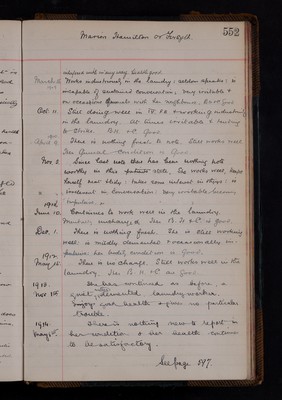 Marion Hamilton or Forsyth.
552
March
Works industriously in the laundry; seldom speaks; is
incapable of sustained conversation; very irritable &
on occasions quarrels with her neighbours. B.H. Good
Oct. 11. Still doing well in working industriously
in the laundry. irritable &
to strike. B.H. &c Good.
There is nothing fresh to note. Still works well
General Condition is Good.
Nov. 2 Since last note there has been nothing note
worthy in this patient's state. She works well, keeps
herself neat & tidy; takes some interest in things; is
incoherent in conversation; very irritable becomes
1911.
June 10. Continues to work well in the laundry.
Mentally unchanged. Her B. H. &c is good.
Dec. 1. There is nothing fresh. She is still working
well. is mildly demented & occasionally im-
pulsive; her bodily condition is Good.
1912.
May 12. There is no change. Still works well in the
laundry. Her B. H. &c are Good.
1913. She has continued as before, a
Nov 1st quiet, demented laundry-worker.
Enjoys good health & gives no particular
trouble.
1914. There is nothing new to report in
May 1st. her condition & her health continues
to be satisfactory.
See page 597.